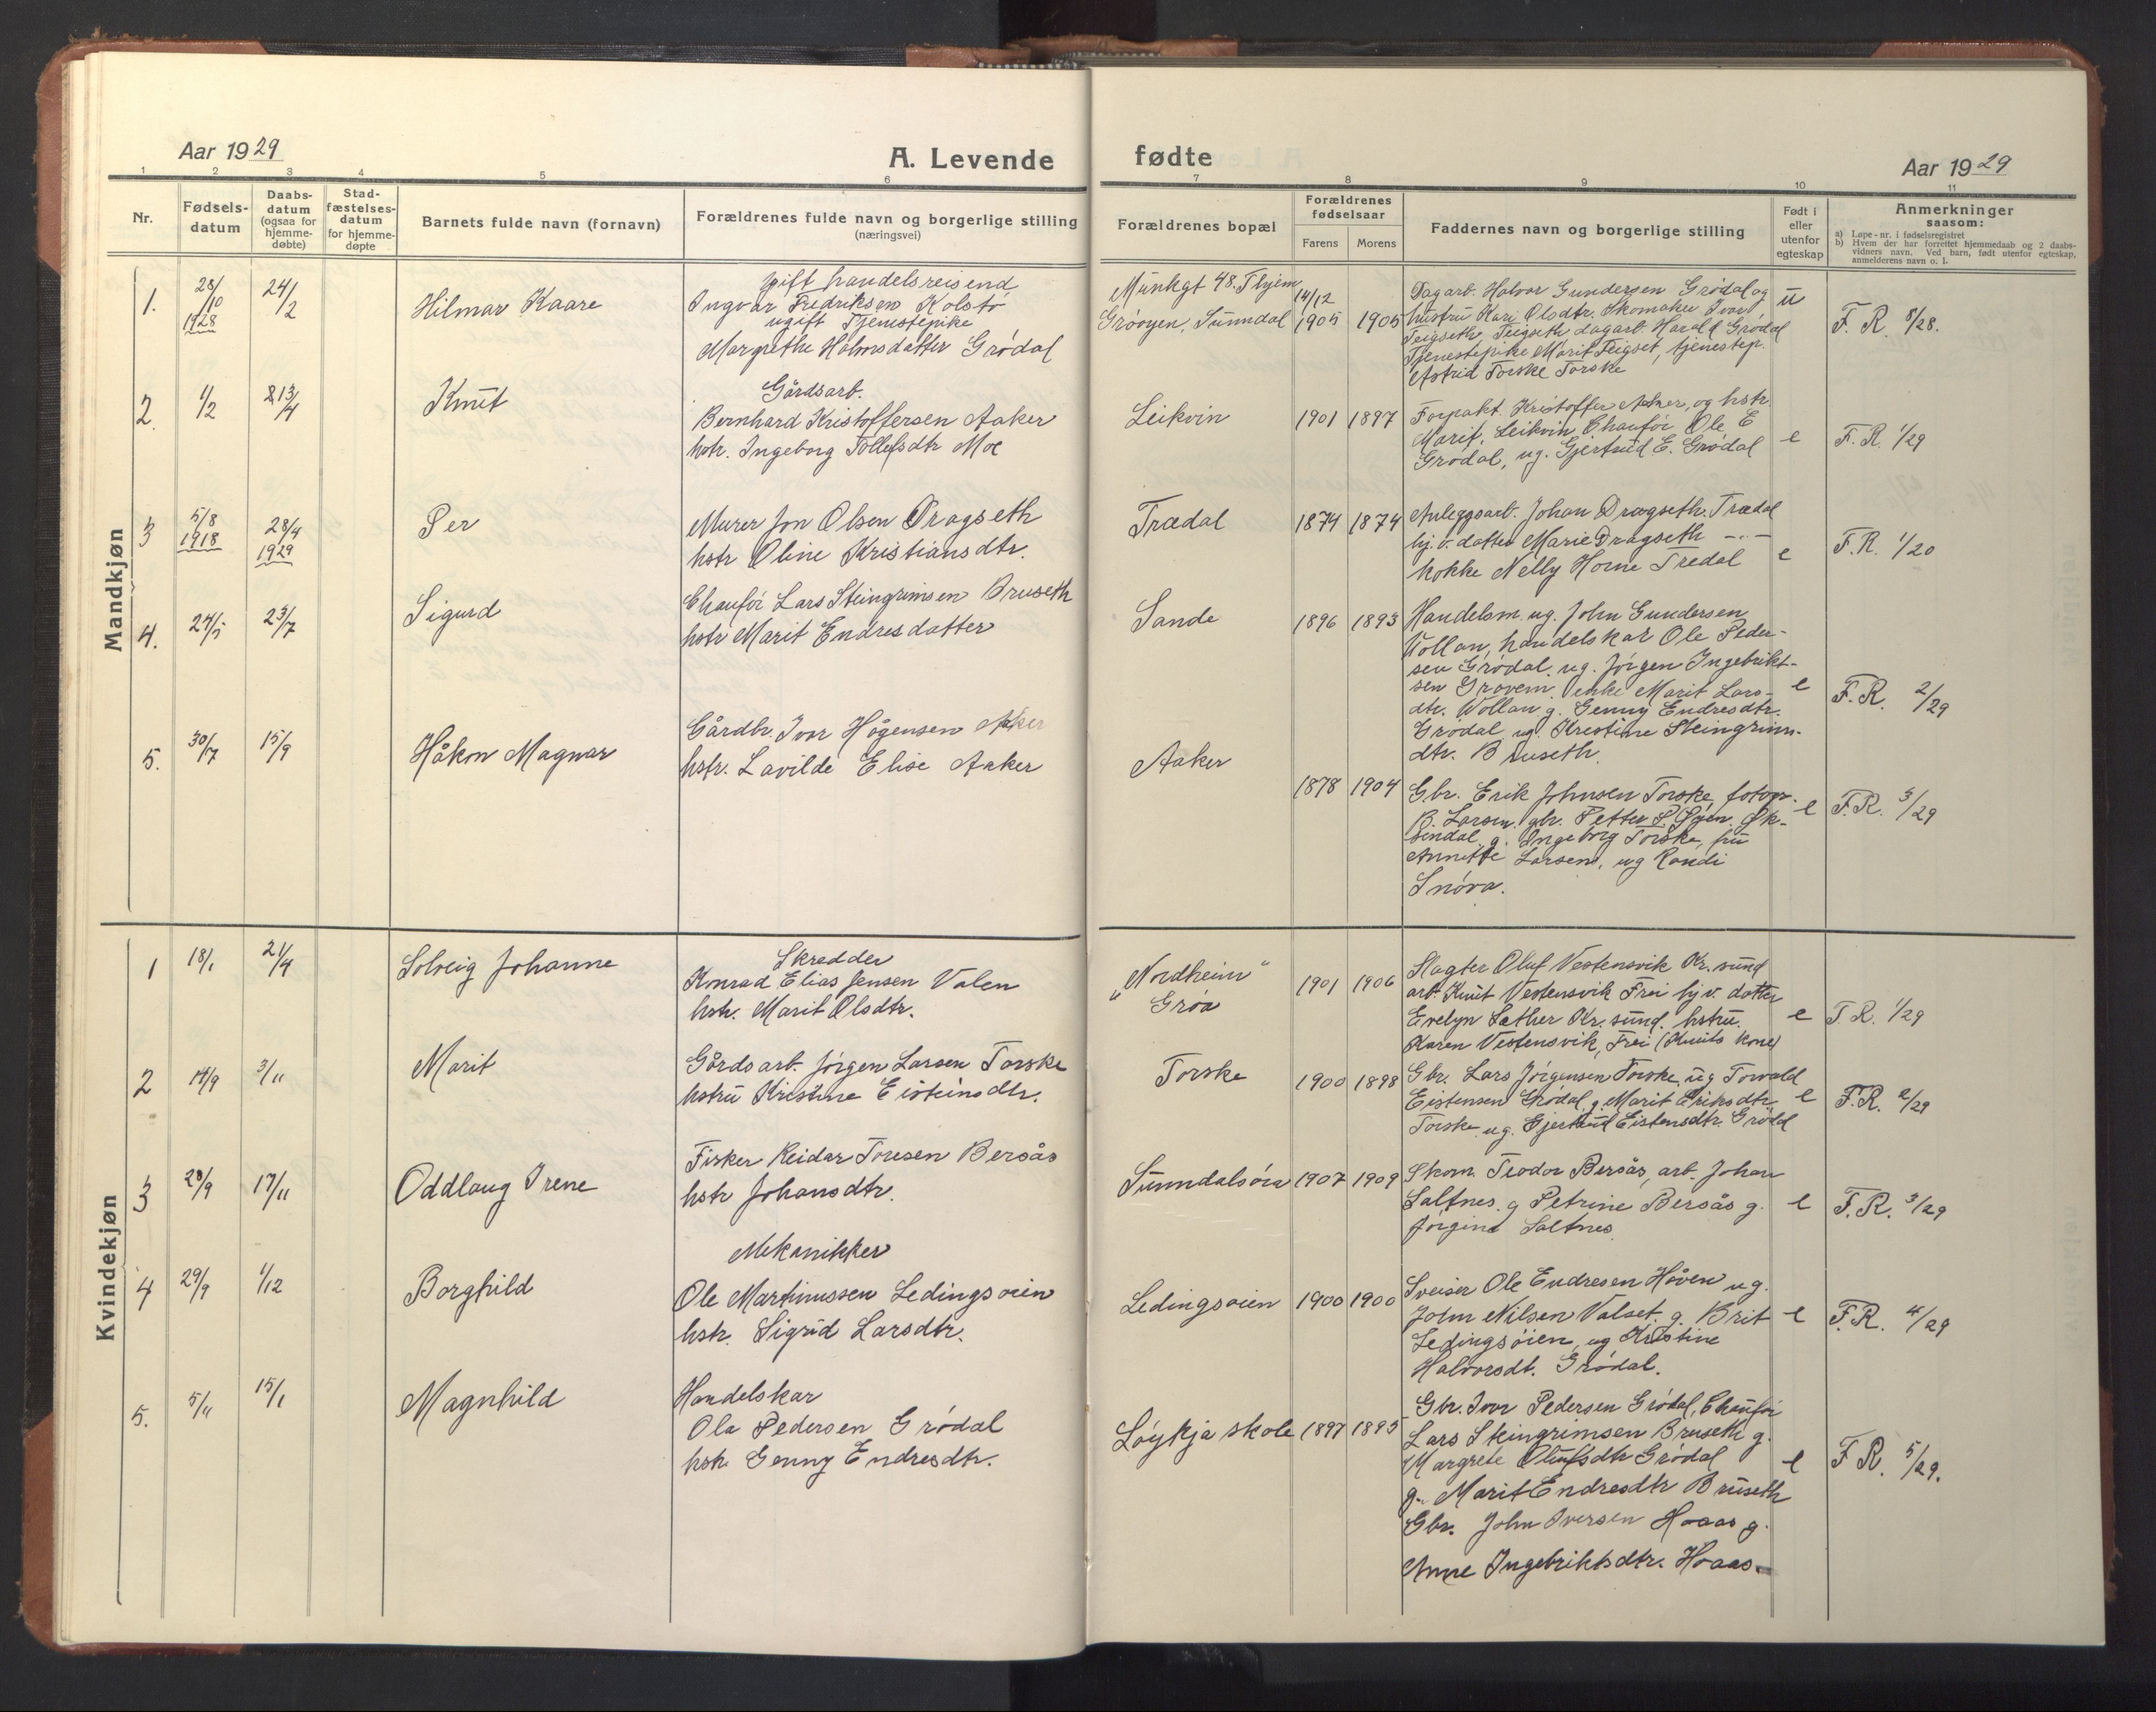 Aar 1929
A. Levende
fødte
Aar 1929
1 2 3 4 5 6 7 8 9 10 11
Nr.
Fødsels-
datum
Daabs-
datum
(ogsaa for
hjemme-
døbte)
Stad-
fæstelses-
datum
for hjemme-
døpte
Barnets fulde navn (fornavn)
Forældrenes fulde navn og borgerlige stilling
(næringsvei)
Forældrenes bopæl
Forældrenes
fødselsaar
Farens Morens
Faddernes navn og borgerlige stilling
Født i
eller
utenfor
egteskap
Anmerkninger
saasom:
a) Løpe-nr. i fødselsregistret
b) Hvem der har forrettet hjemmedaab og 2 daabs-
vidners navn. Ved barn, født utenfor egteskap,
anmelderens navn o. l.
Mandkjøn
1. 28/10 1928 24/2 Hilmar Kaare
gift handelsreisend
Ingvar Fredriksen Kolstø
ugift Tjenestepike
Margrethe Halvorsdatter Grødal
Munkgt 48. Thjem
Grøoyen, Sunndal
14/12
1905 1905
Dagarb. Halvor Gundersen Grødal og
hustru Kari Olsdtr. Skomaker Ivar
Teigseth, Teigseth dagarb. Harald Grødal
Tjenestepike Marit Teigset, tjenestep.
Astrid Torske Torske
u
F. R. 8/28.
2. 1/2 13/4 Knut
Gårdsarb.
Bernhard Kristoffersen Aaker
hstr. Ingeborg Tollefsdtr Moe
Leikvin 1901 1897
Forpakt. Kristoffer Aaker, og hstr.
Marit, Leikvin Chaufør Ole E
Grødal, ug. Gjertrud E. Grødal
e
F. R. 1/29
3 5/8 1918 28/4 1929 Per
Murer Jon Olsen Dragseth
hstr Oline Kristiansdtr.
Trædal 1874 1874
Anleggsarb. Johan Dragseth. Trædal
hj.v. datter Marie Dragseth -"-
kokke Nelly Horne Tredal
e
F.R. 1/20
4. 24/5 23/7 Sigurd
Chaufør Lars Steingrimsen Bruseth
hstr Marit Endresdatter
Sande 1896 1893
Handelsm. ug. John Gundersen
Vollan, handelskar Ole Peder-
sen Grødal, ug. Jørgen Ingebrikt-
sen Grøvem, enke Marit Lars-
dtr. Wollan g. Genny Endresdtr.
Grødal, ug. Kristine Steingrims-
dtr. Bruseth.
e
F.R. 2/29
5. 30/7 15/9 Håkon Magnar
Gårdbr. Ivar Hågensen Aaker
hstr. Lavilde Elise Aaker
Aaker 1878 1904
Gbr. Erik Johnsen Torske, fotogr.
B. Larsen, gbr. Petter P. Øyen, Øk-
sendal, g. Ingeborg Torske, fru
Annette Larsen, ug Randi
Snøva.
e
F.R. 3/29
Kvindekjøn
1 18/1 21/4 Solveig Johanne
Skredder
Konrad Elias Jensen Valen
hstr. Marit Olsdtr.
„Nordheim"
Grøa
1901 1906
Slagter Oluf Vestensvik Kr.sund
arb. Knut Vestensvik Frei hj.v. datter
Evelyn Sæther Kr.sund. hstru.
Karen Vestensvik, Frei (Knuts kone)
e
F. R. 1/29
2 14/9 3/11 Marit
Gårdsarb. Jørgen Larsen Torske
hstru Kristine Eisteinsdtr.
Torske 1900 1898
Gbr. Lars Jørgensen Torske, ug Torvald
Eistensen Grødal, g. Marit Eriksdtr.
Torske, ug. Gjertrud Eistensdtr. Grødal
e
F.R. 2/29
3 20/9 17/11 Oddlaug Irene
Fisker Reidar Toresen Bersås
hstr Johansdtr.
Sunndalsøra 1907 1909
Skom. Teodor Bersås, arb. Johan
Saltnes, g Petrine Bersås g.
Jørgine Saltnes
e
F.R. 3/29
4 29/9 1/12 Borghild
Mekanikker
Ole Martinussen Ledingsøien
hstr. Sigrid Larsdtr.
Ledingsøien 1900 1900
Sveiser Ole Endresen Høven ug.
John Nilsen Valset. g. Brit
Ledingsøien, ug Kristine
Halvorsdt. Grødal.
e
F.R. 4/29
5. 5/11 15/1 Magnhild
Handelskar
Ola Pedersen Grødal
hstr. Genny Endresdtr.
Løykja skole 1897 1895
Gbr. Ivar Pedersen Grødal, Chaufør
Lars Steingrimsen Bruseth g.
Margrete Olufsdtr Grødal
g. Marit Endresdtr Bruseth
Gbr. John Iversen Hoaas g.
Anne Ingebriktsdtr. Hoaas.
e
F R. 5/29.